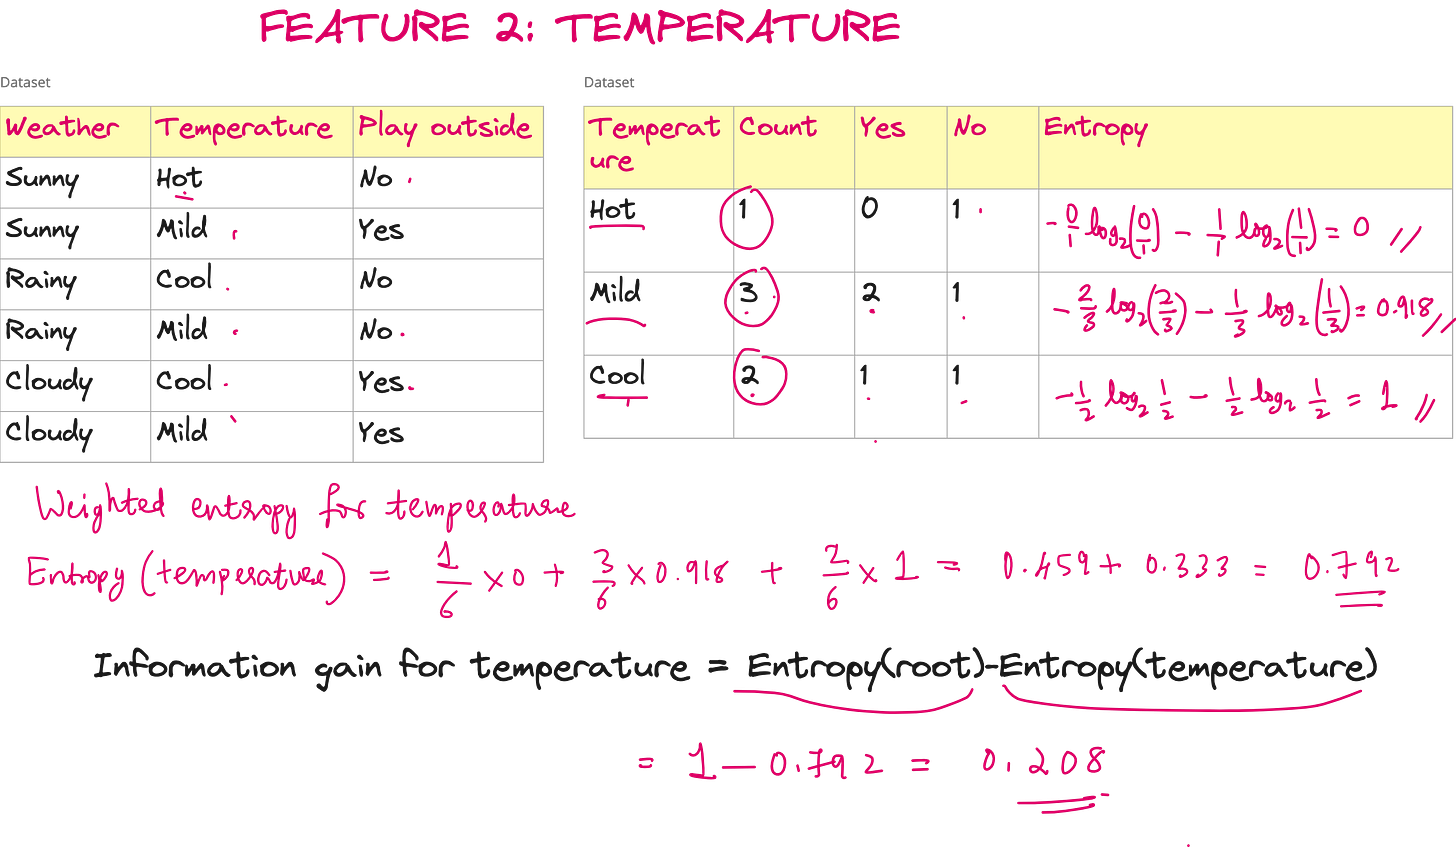 FEATURE 2: TEMPERATURE
Dataset
Weather Temperature Play outside
Sunny Hot No
Sunny Mild Yes
Rainy Cool No
Rainy Mild No
Cloudy Cool Yes
Cloudy Mild Yes
Dataset
Temperat
ure Count Yes No Entropy
Hot 1 0 1 -0/1 log₂(0/1) - 1/1 log₂(1/1) = 0 //
Mild 3 2 1 -2/3 log₂(2/3) - 1/3 log₂(1/3) = 0.918 //
Cool 2 1 1 -1/2 log₂ 1/2 - 1/2 log₂ 1/2 = 1 //
Weighted entropy for temperature
Entropy (temperature) = 1/6 × 0 + 3/6 × 0.918 + 2/6 × 1 = 0.459 + 0.333 = 0.792
Information gain for temperature = Entropy(root)-Entropy(temperature)
= 1 - 0.792 = 0.208